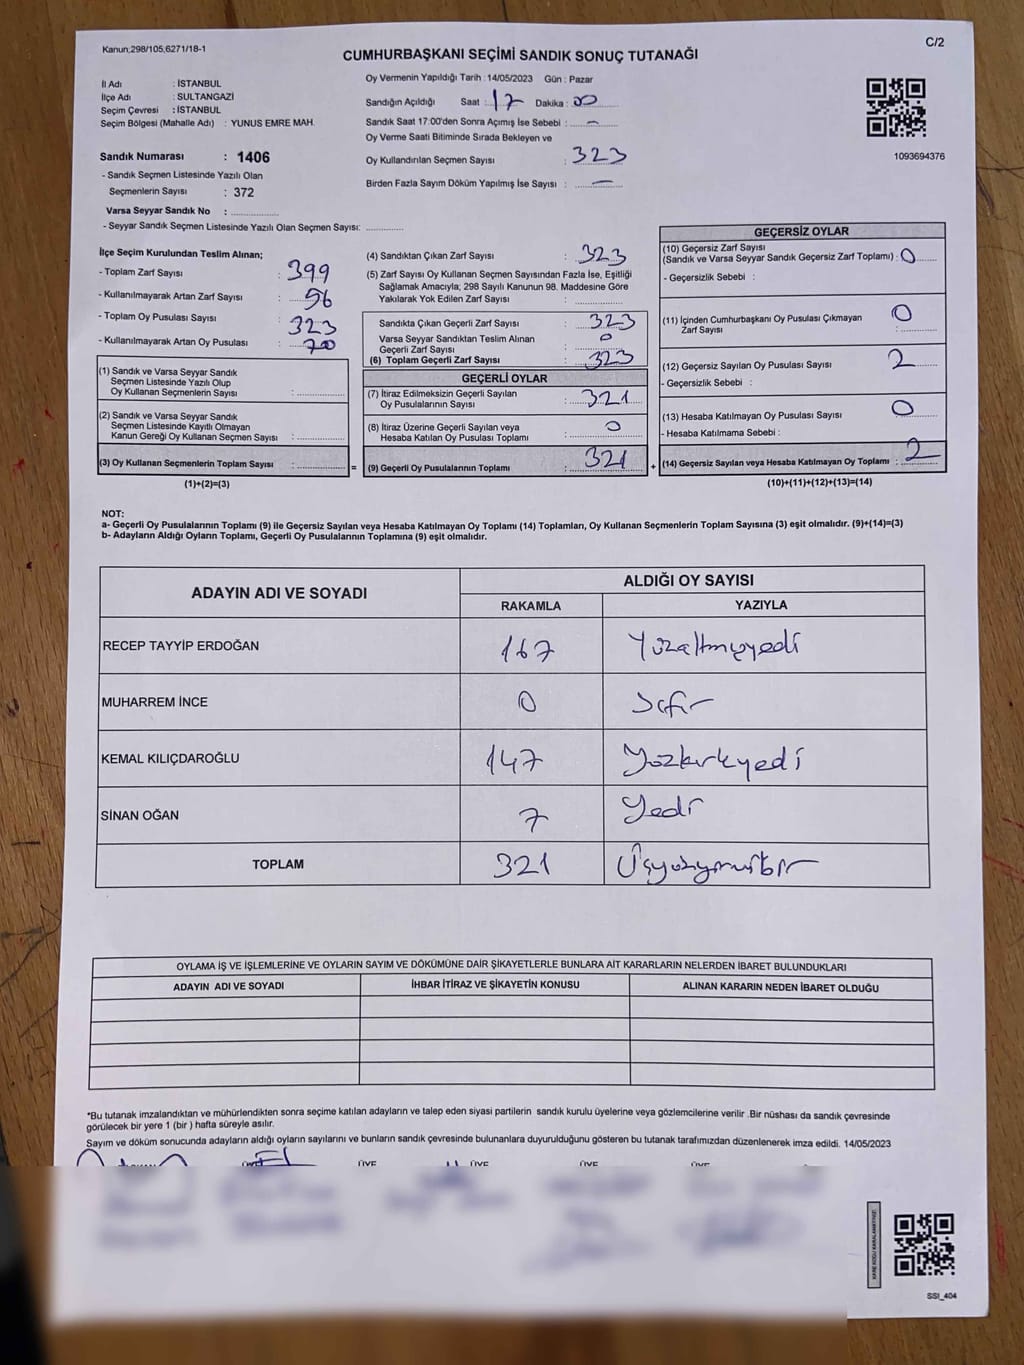 Kanun;298/105,6271/18-1
C/2
CUMHURBAŞKANI SEÇİMİ SANDIK SONUÇ TUTANAĞI
İl Adı : İSTANBUL
İlçe Adı : SULTANGAZİ
Seçim Çevresi : İSTANBUL
Seçim Bölgesi (Mahalle Adı) : YUNUS EMRE MAH.
Sandık Numarası : 1406
- Sandık Seçmen Listesinde Yazılı Olan
Seçmenlerin Sayısı : 372
Varsa Seyyar Sandık No :
- Seyyar Sandık Seçmen Listesinde Yazılı Olan Seçmen Sayısı:
Oy Vermenin Yapıldığı Tarih : 14/05/2023 Gün : Pazar
Sandığın Açıldığı Saat : 17 Dakika : 00
Sandık Saat 17:00'den Sonra Açımış İse Sebebi : -
Oy Verme Saati Bitiminde Sırada Bekleyen ve
Oy Kullandırılan Seçmen Sayısı : 323
Birden Fazla Sayım Döküm Yapılmış İse Sayısı : -
1093694376
İlçe Seçim Kurulundan Teslim Alınan;
- Toplam Zarf Sayısı : 399
- Kullanılmayarak Artan Zarf Sayısı : 56
- Toplam Oy Pusulası Sayısı : 323
- Kullanılmayarak Artan Oy Pusulası : 70
(1) Sandık ve Varsa Seyyar Sandık
Seçmen Listesinde Yazılı Olup
Oy Kullanan Seçmenlerin Sayısı :
(2) Sandık ve Varsa Seyyar Sandık
Seçmen Listesinde Kayıtlı Olmayan
Kanun Gereği Oy Kullanan Seçmen Sayısı :
(3) Oy Kullanan Seçmenlerin Toplam Sayısı : =
(1)+(2)=(3)
(4) Sandıktan Çıkan Zarf Sayısı : 323
(5) Zarf Sayısı Oy Kullanan Seçmen Sayısından Fazla İse, Eşitliği
Sağlamak Amacıyla; 298 Sayılı Kanunun 98. Maddesine Göre
Yakılarak Yok Edilen Zarf Sayısı :
Sandıkta Çıkan Geçerli Zarf Sayısı : 323
Varsa Seyyar Sandıktan Teslim Alınan
Geçerli Zarf Sayısı : 0
(6) Toplam Geçerli Zarf Sayısı : 323
GEÇERLİ OYLAR
(7) İtiraz Edilmeksizin Geçerli Sayılan
Oy Pusulalarının Sayısı : 321
(8) İtiraz Üzerine Geçerli Sayılan veya
Hesaba Katılan Oy Pusulası Toplamı : 0
(9) Geçerli Oy Pusulalarının Toplamı : 321 +
GEÇERSİZ OYLAR
(10) Geçersiz Zarf Sayısı
(Sandık ve Varsa Seyyar Sandık Geçersiz Zarf Toplamı) : 0
- Geçersizlik Sebebi :
(11) İçinden Cumhurbaşkanı Oy Pusulası Çıkmayan
Zarf Sayısı : 0
(12) Geçersiz Sayılan Oy Pusulası Sayısı : 2
- Geçersizlik Sebebi :
(13) Hesaba Katılmayan Oy Pusulası Sayısı : 0
- Hesaba Katılmama Sebebi :
(14) Geçersiz Sayılan veya Hesaba Katılmayan Oy Toplamı : 2
(10)+(11)+(12)+(13)=(14)
NOT:
a- Geçerli Oy Pusulalarının Toplamı (9) ile Geçersiz Sayılan veya Hesaba Katılmayan Oy Toplamı (14) Toplamları, Oy Kullanan Seçmenlerin Toplam Sayısına (3) eşit olmalıdır. (9)+(14)=(3)
b- Adayların Aldığı Oyların Toplamı, Geçerli Oy Pusulalarının Toplamına (9) eşit olmalıdır.
ADAYIN ADI VE SOYADI
ALDIĞI OY SAYISI
RAKAMLA YAZIYLA
RECEP TAYYİP ERDOĞAN 167 Yüzaltmışyedi
MUHARREM İNCE 0 Sıfır
KEMAL KILIÇDAROĞLU 147 Yüzkırkyedi
SİNAN OĞAN 7 Yedi
TOPLAM 321 Üçyüzyirmibir
OYLAMA İŞ VE İŞLEMLERİNE VE OYLARIN SAYIM VE DÖKÜMÜNE DAİR ŞİKAYETLERLE BUNLARA AİT KARARLARIN NELERDEN İBARET BULUNDUKLARI
ADAYIN ADI VE SOYADI İHBAR İTİRAZ VE ŞİKAYETİN KONUSU ALINAN KARARIN NEDEN İBARET OLDUĞU
*Bu tutanak imzalandıktan ve mühürlendikten sonra seçime katılan adayların ve talep eden siyasi partilerin sandık kurulu üyelerine veya gözlemcilerine verilir .Bir nüshası da sandık çevresinde
görülecek bir yere 1 (bir ) hafta süreyle asılır.
Sayım ve döküm sonucunda adayların aldığı oyların sayılarını ve bunların sandık çevresinde bulunanlara duyurulduğunu gösteren bu tutanak tarafımızdan düzenlenerek imza edildi. 14/05/2023
ÜYE ÜYE ÜYE ÜYE
KARE KODU KARALAMAYINIZ!
SSI_404